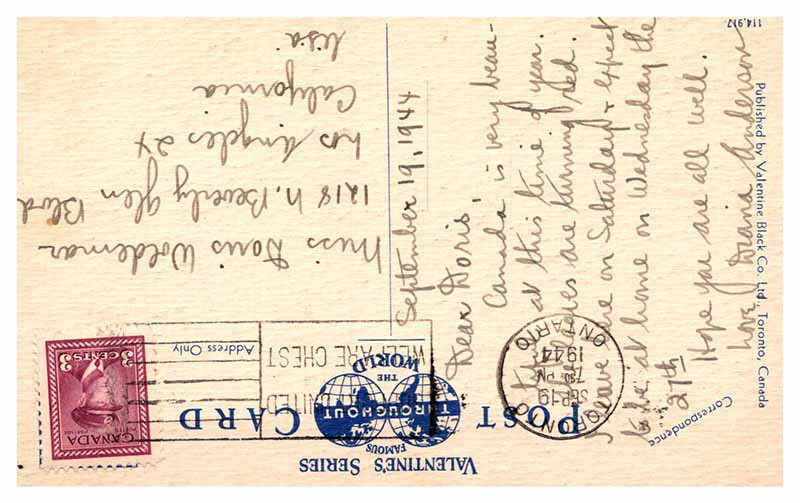 VALENTINE'S SERIES
FAMOUS
THROUGHOUT
THE
WORLD
POST CARD
Correspondence
Address Only
CANADA
POSTES POSTAGE
3 CENTS 3
TORONTO
SEP 19
730 PM
1944
ONTARIO
UNITED
WELFARE CHEST
September 19, 1944
Dear Doris,
Canada is very beau-
tiful at this time of year.
The leaves are turning red.
I leave on Saturday & expect
to be at home on Wednesday the
27th
Hope you are all well.
Love, Diana Anderson
Miss Doris Woldemar
1218 N. Beverly Glen Blvd
Los Angeles 24
California
USA
Published by Valentine Black Co. Ltd., Toronto, Canada
114,917